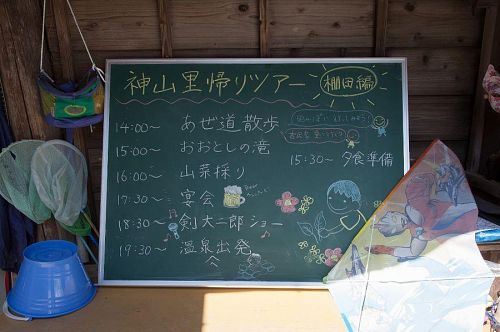 神山里帰りツアー 棚田編
14:00～ あぜ道散歩
15:00～ おおとしの滝
15:30～ 夕食準備
16:00～ 山菜採り
17:30～ 宴会
18:30～ 剣大二郎ショー
19:30～ 温泉出発